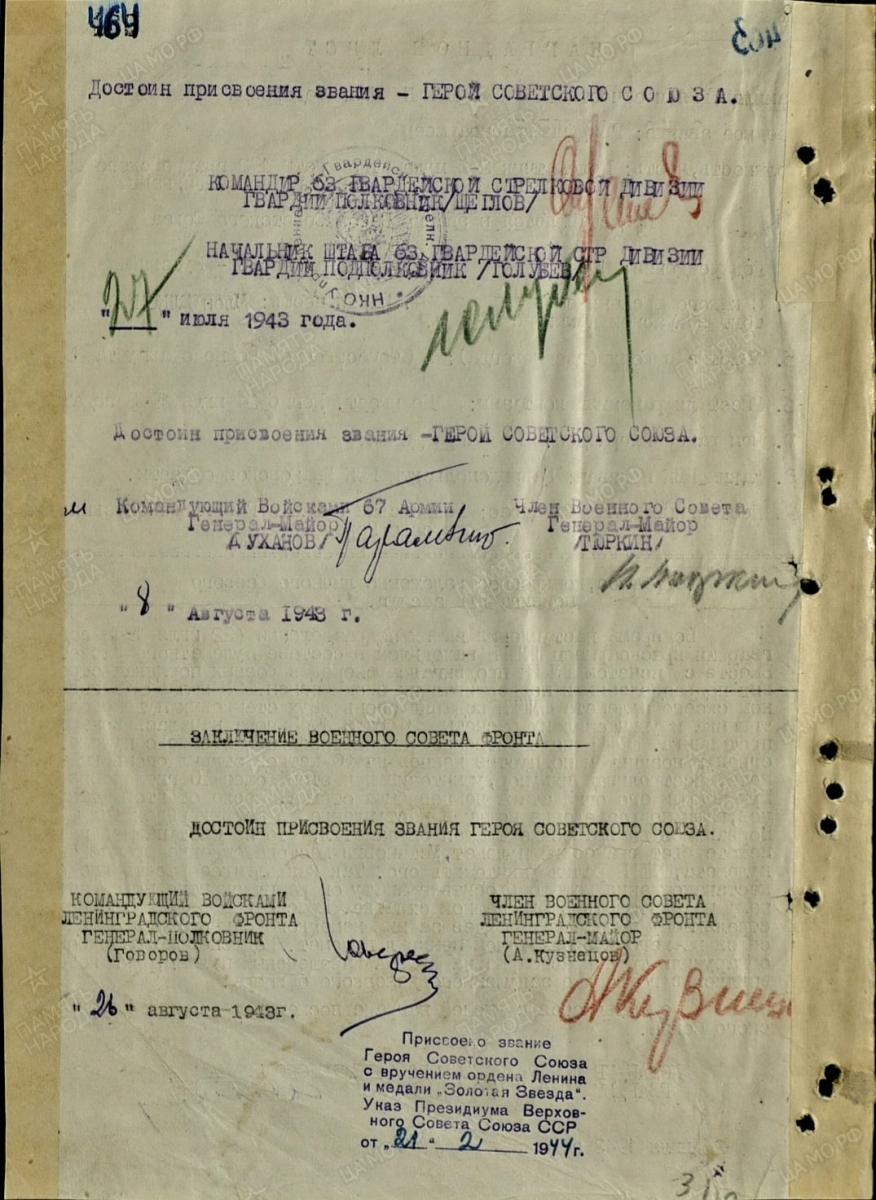 403
Достоин присвоения звания - ГЕРОЙ СОВЕТСКОГО С О Ю З А.
КОМАНДИР 63 ГВАРДЕЙСКОЙ СТРЕЛКОВОЙ ДИВИЗИИ
ГВАРДИИ ПОЛКОВНИК/ЩЕГЛОВ/
НАЧАЛЬНИК ШТАБА 63 ГВАРДЕЙСКОЙ СТР ДИВИЗИИ
ГВАРДИИ ПОДПОЛКОВНИК /ГОЛУБЕВ/
"27" июля 1943 года.
Достоин присвоения звания -ГЕРОЙ СОВЕТСКОГО СОЮЗА.
Командующий Войсками 67 Армии Член Военного Совета
Генерал-Майор Генерал-Майор
/ДУХАНОВ/ /ТЮРКИН/
"8" Августа 1943 г.
ЗАКЛЮЧЕНИЕ ВОЕННОГО СОВЕТА ФРОНТА
ДОСТОИН ПРИСВОЕНИЯ ЗВАНИЯ ГЕРОЯ СОВЕТСКОГО СОЮЗА.
КОМАНДУЮЩИЙ ВОЙСКАМИ ЧЛЕН ВОЕННОГО СОВЕТА
ЛЕНИНГРАДСКОГО ФРОНТА ЛЕНИНГРАДСКОГО ФРОНТА
ГЕНЕРАЛ-ПОЛКОВНИК ГЕНЕРАЛ-МАЙОР
(Говоров) (А.Кузнецов)
"26" августа 1943г.
Присвоено звание
Героя Советского Союза
с вручением ордена Ленина
и медали „Золотая Звезда".
Указ Президиума Верхов-
ного Совета Союза ССР
от „21" 2 1944г.